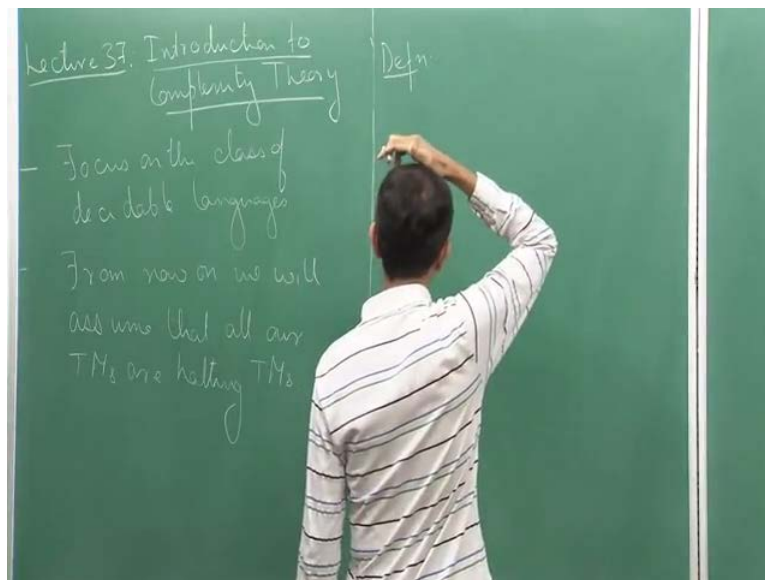 Lecture 37: Introduction to
Complexity Theory
- Focus on the class of
decidable languages
- From now on we will
assume that all our
TMs are halting TMs
Defn.